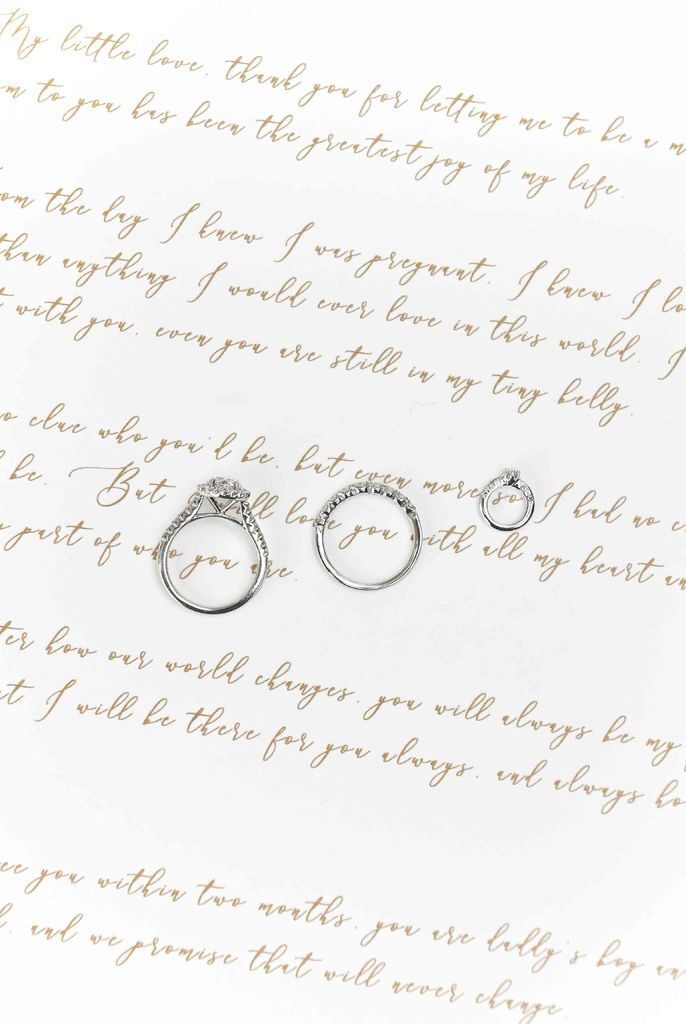 My little love, thank you for letting me to be a m
m to you has been the greatest joy of my life.
om the day I knew I was pregnant. I knew I lo
than anything I would ever love in this world. I
t with you, even you are still in my tiny belly.
o clue who you'd be, but even more so I had no c
be. But will love you with all my heart an
part of who you are.
ter how our world changes, you will always be my
t I will be there for you always, and always ho
ee you within two months, you are daddy's boy an
l, and we promise that will never change.